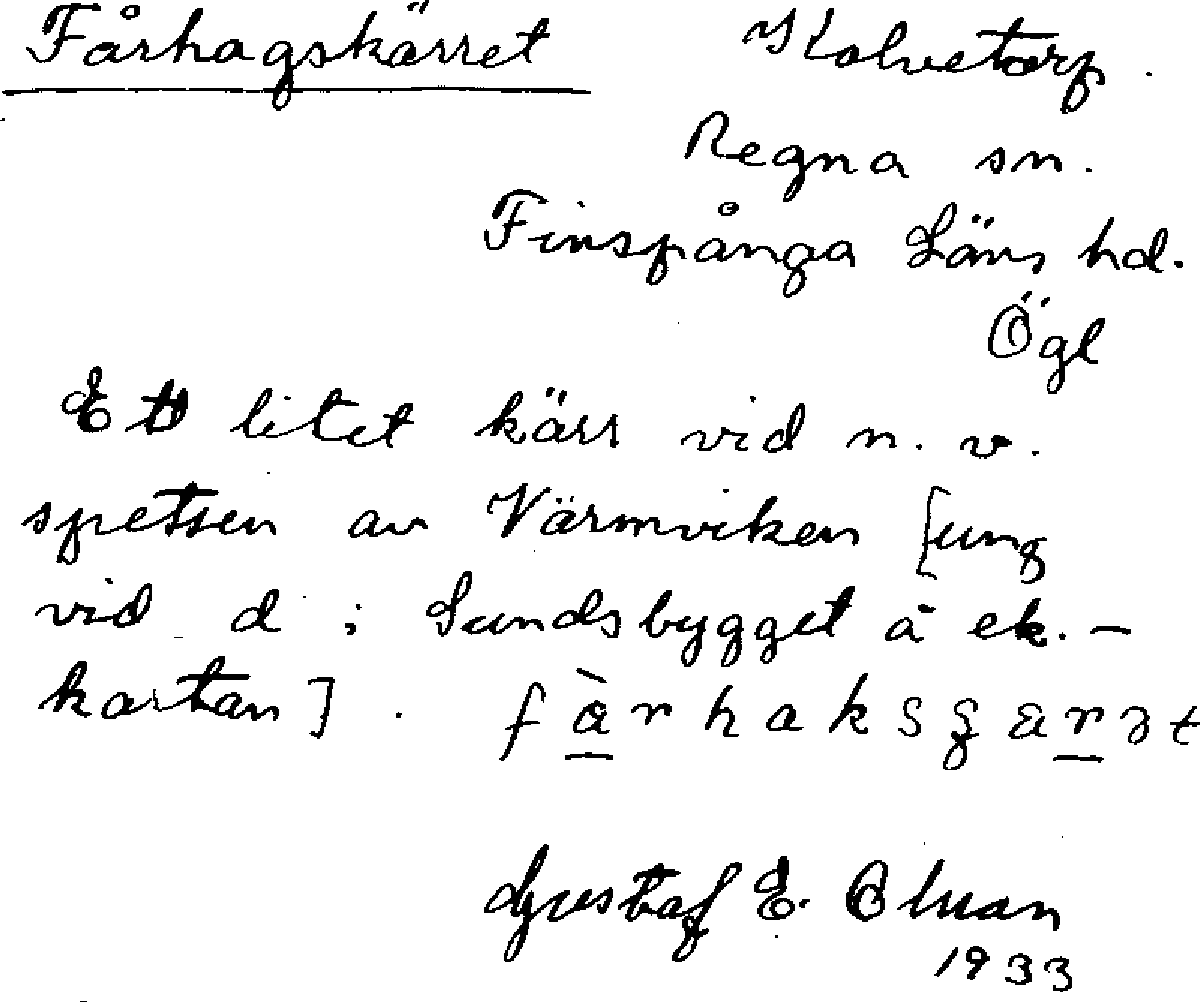 Fårhagskärret Kolvetorp.
Regna sn.
Finspånga Läns hd.
Ögl
Ett litet kärr vid n. v.
spetsen av Värmviken [ung
vid d i Sundsbygget å ek.-
kartan].
Gustaf E. 
1933